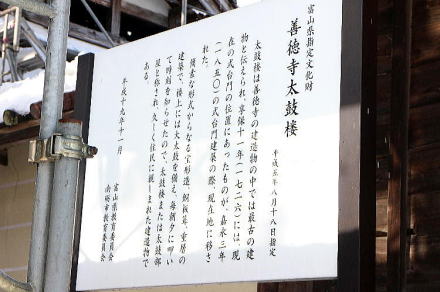 富山県指定文化財
善徳寺太鼓楼
平成五年八月十八日指定
太鼓楼は善徳寺の建造物の中では最古の建
物と伝えられ、享保十一年(一七二六)には、現
在の式台門の位置にあったものが、嘉永三年
(一八五〇)の式台門建築の際、現在地に移さ
れた。
簡素な形式からなる宝形造、銅板葺、重層の
建築で、楼上には大太鼓を備え、毎朝夕に叩い
て時刻を知らせたので、太鼓楼または太鼓部
屋と称され、久しく住民に親しまれた建造物で
ある。
平成十九年十一月
富山県教育委員会
南砺市教育委員会